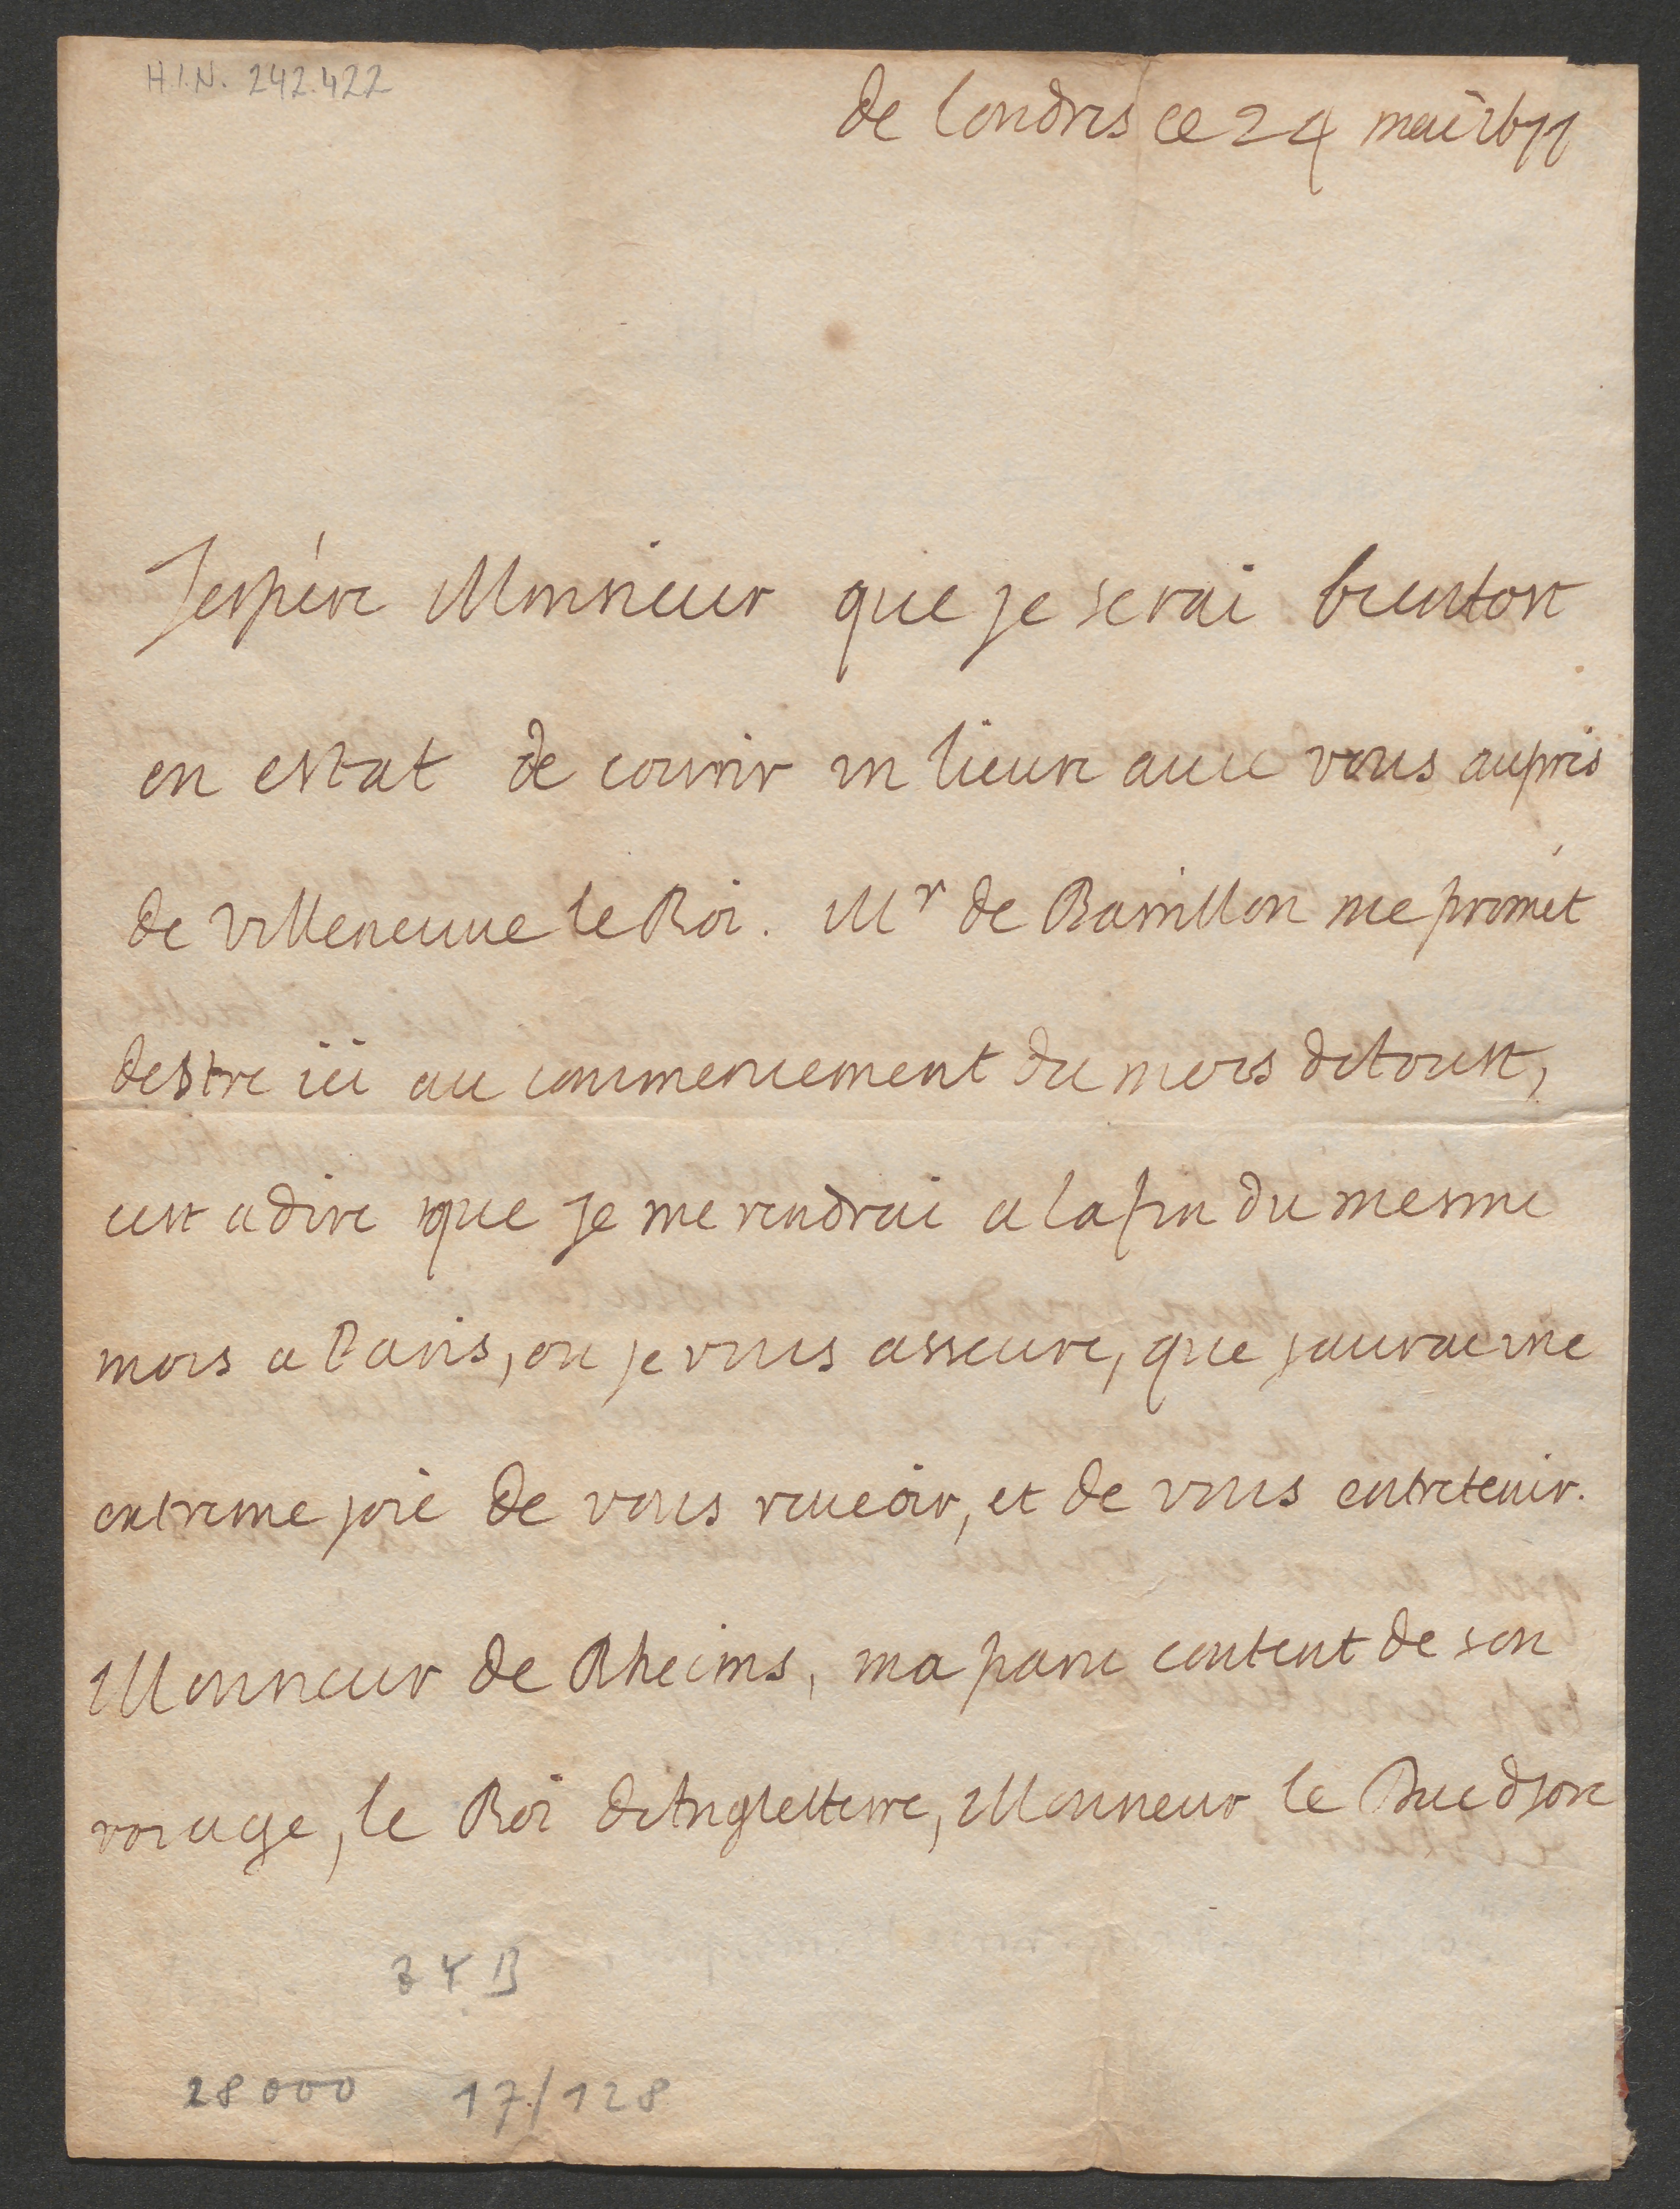 H.I.N. 242.422
de Londres ce 24 mai 1677
Jespére Monsieur que je serai bientost
en estat de courrir un lieure auec vous aupres
de Villeneuue le Roi. Mr de Barrillon me promét
destre ici au commencement du mois d'Aoust,
cest a dire que je me rendrai a la fin du mesme
mois a Paris, ou je vous asseure, que jaurai une
extreme joie de vous reueoir, et de vous entretenir.
Monsieur de Rheims, ma paru content de son
voiage, le Roi d'Angletterre, Monsieur le Duc djorc
34B
28000 17/128